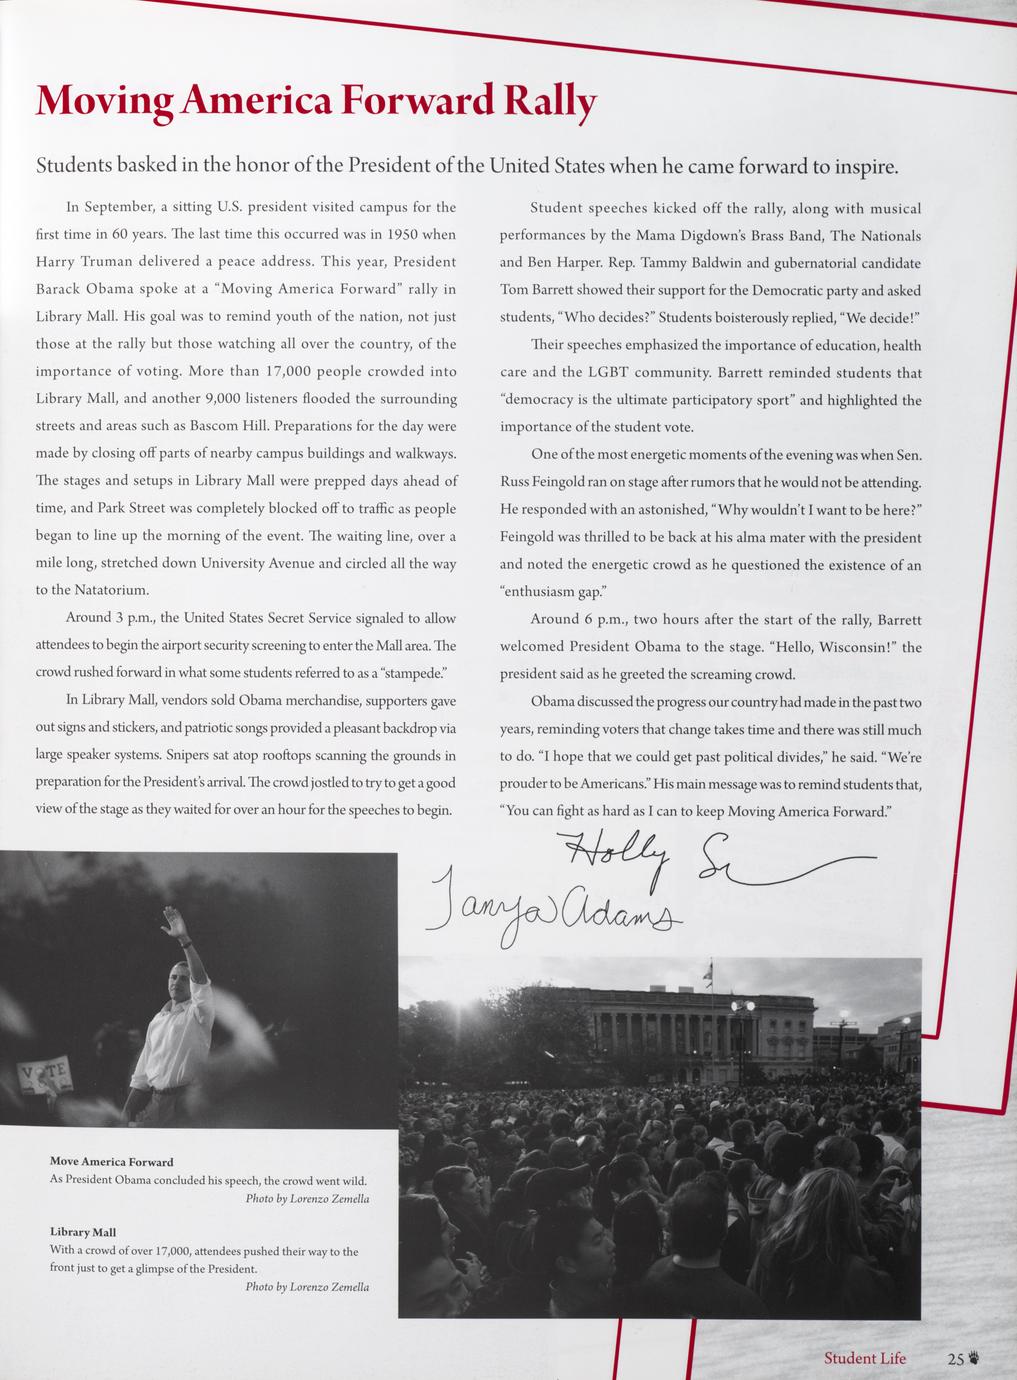 Moving America Forward Rally
Students basked in the honor of the President of the United States when he came forward to inspire.
In September, a sitting U.S. president visited campus for the
first time in 60 years. The last time this occurred was in 1950 when
Harry Truman delivered a peace address. This year, President
Barack Obama spoke at a “Moving America Forward” rally in
Library Mall. His goal was to remind youth of the nation, not just
those at the rally but those watching all over the country, of the
importance of voting. More than 17,000 people crowded into
Library Mall, and another 9,000 listeners flooded the surrounding
streets and areas such as Bascom Hill. Preparations for the day were
made by closing off parts of nearby campus buildings and walkways.
The stages and setups in Library Mall were prepped days ahead of
time, and Park Street was completely blocked off to traffic as people
began to line up the morning of the event. The waiting line, over a
mile long, stretched down University Avenue and circled all the way
to the Natatorium.
Around 3 p.m., the United States Secret Service signaled to allow
attendees to begin the airport security screening to enter the Mall area. The
crowd rushed forward in what some students referred to as a “stampede.”
In Library Mall, vendors sold Obama merchandise, supporters gave
out signs and stickers, and patriotic songs provided a pleasant backdrop via
large speaker systems. Snipers sat atop rooftops scanning the grounds in
preparation for the President’s arrival. The crowd jostled to try to get a good
view of the stage as they waited for over an hour for the speeches to begin.
Student speeches kicked off the rally, along with musical
performances by the Mama Digdown’s Brass Band, The Nationals
and Ben Harper. Rep. Tammy Baldwin and gubernatorial candidate
Tom Barrett showed their support for the Democratic party and asked
students, “Who decides?” Students boisterously replied, “We decide!”
Their speeches emphasized the importance of education, health
care and the LGBT community. Barrett reminded students that
“democracy is the ultimate participatory sport” and highlighted the
importance of the student vote.
One of the most energetic moments of the evening was when Sen.
Russ Feingold ran on stage after rumors that he would not be attending.
He responded with an astonished, “Why wouldn’t I want to be here?”
Feingold was thrilled to be back at his alma mater with the president
and noted the energetic crowd as he questioned the existence of an
“enthusiasm gap.”
Around 6 p.m., two hours after the start of the rally, Barrett
welcomed President Obama to the stage. “Hello, Wisconsin!” the
president said as he greeted the screaming crowd.
Obama discussed the progress our country had made in the past two
years, reminding voters that change takes time and there was still much
to do. “I hope that we could get past political divides,” he said. “We’re
prouder to be Americans.” His main message was to remind students that,
“You can fight as hard as I can to keep Moving America Forward.”
Holly
Tanya Adams
VOTE
Move America Forward
As President Obama concluded his speech, the crowd went wild.
Photo by Lorenzo Zemella
Library Mall
With a crowd of over 17,000, attendees pushed their way to the
front just to get a glimpse of the President.
Photo by Lorenzo Zemella
Student Life 25